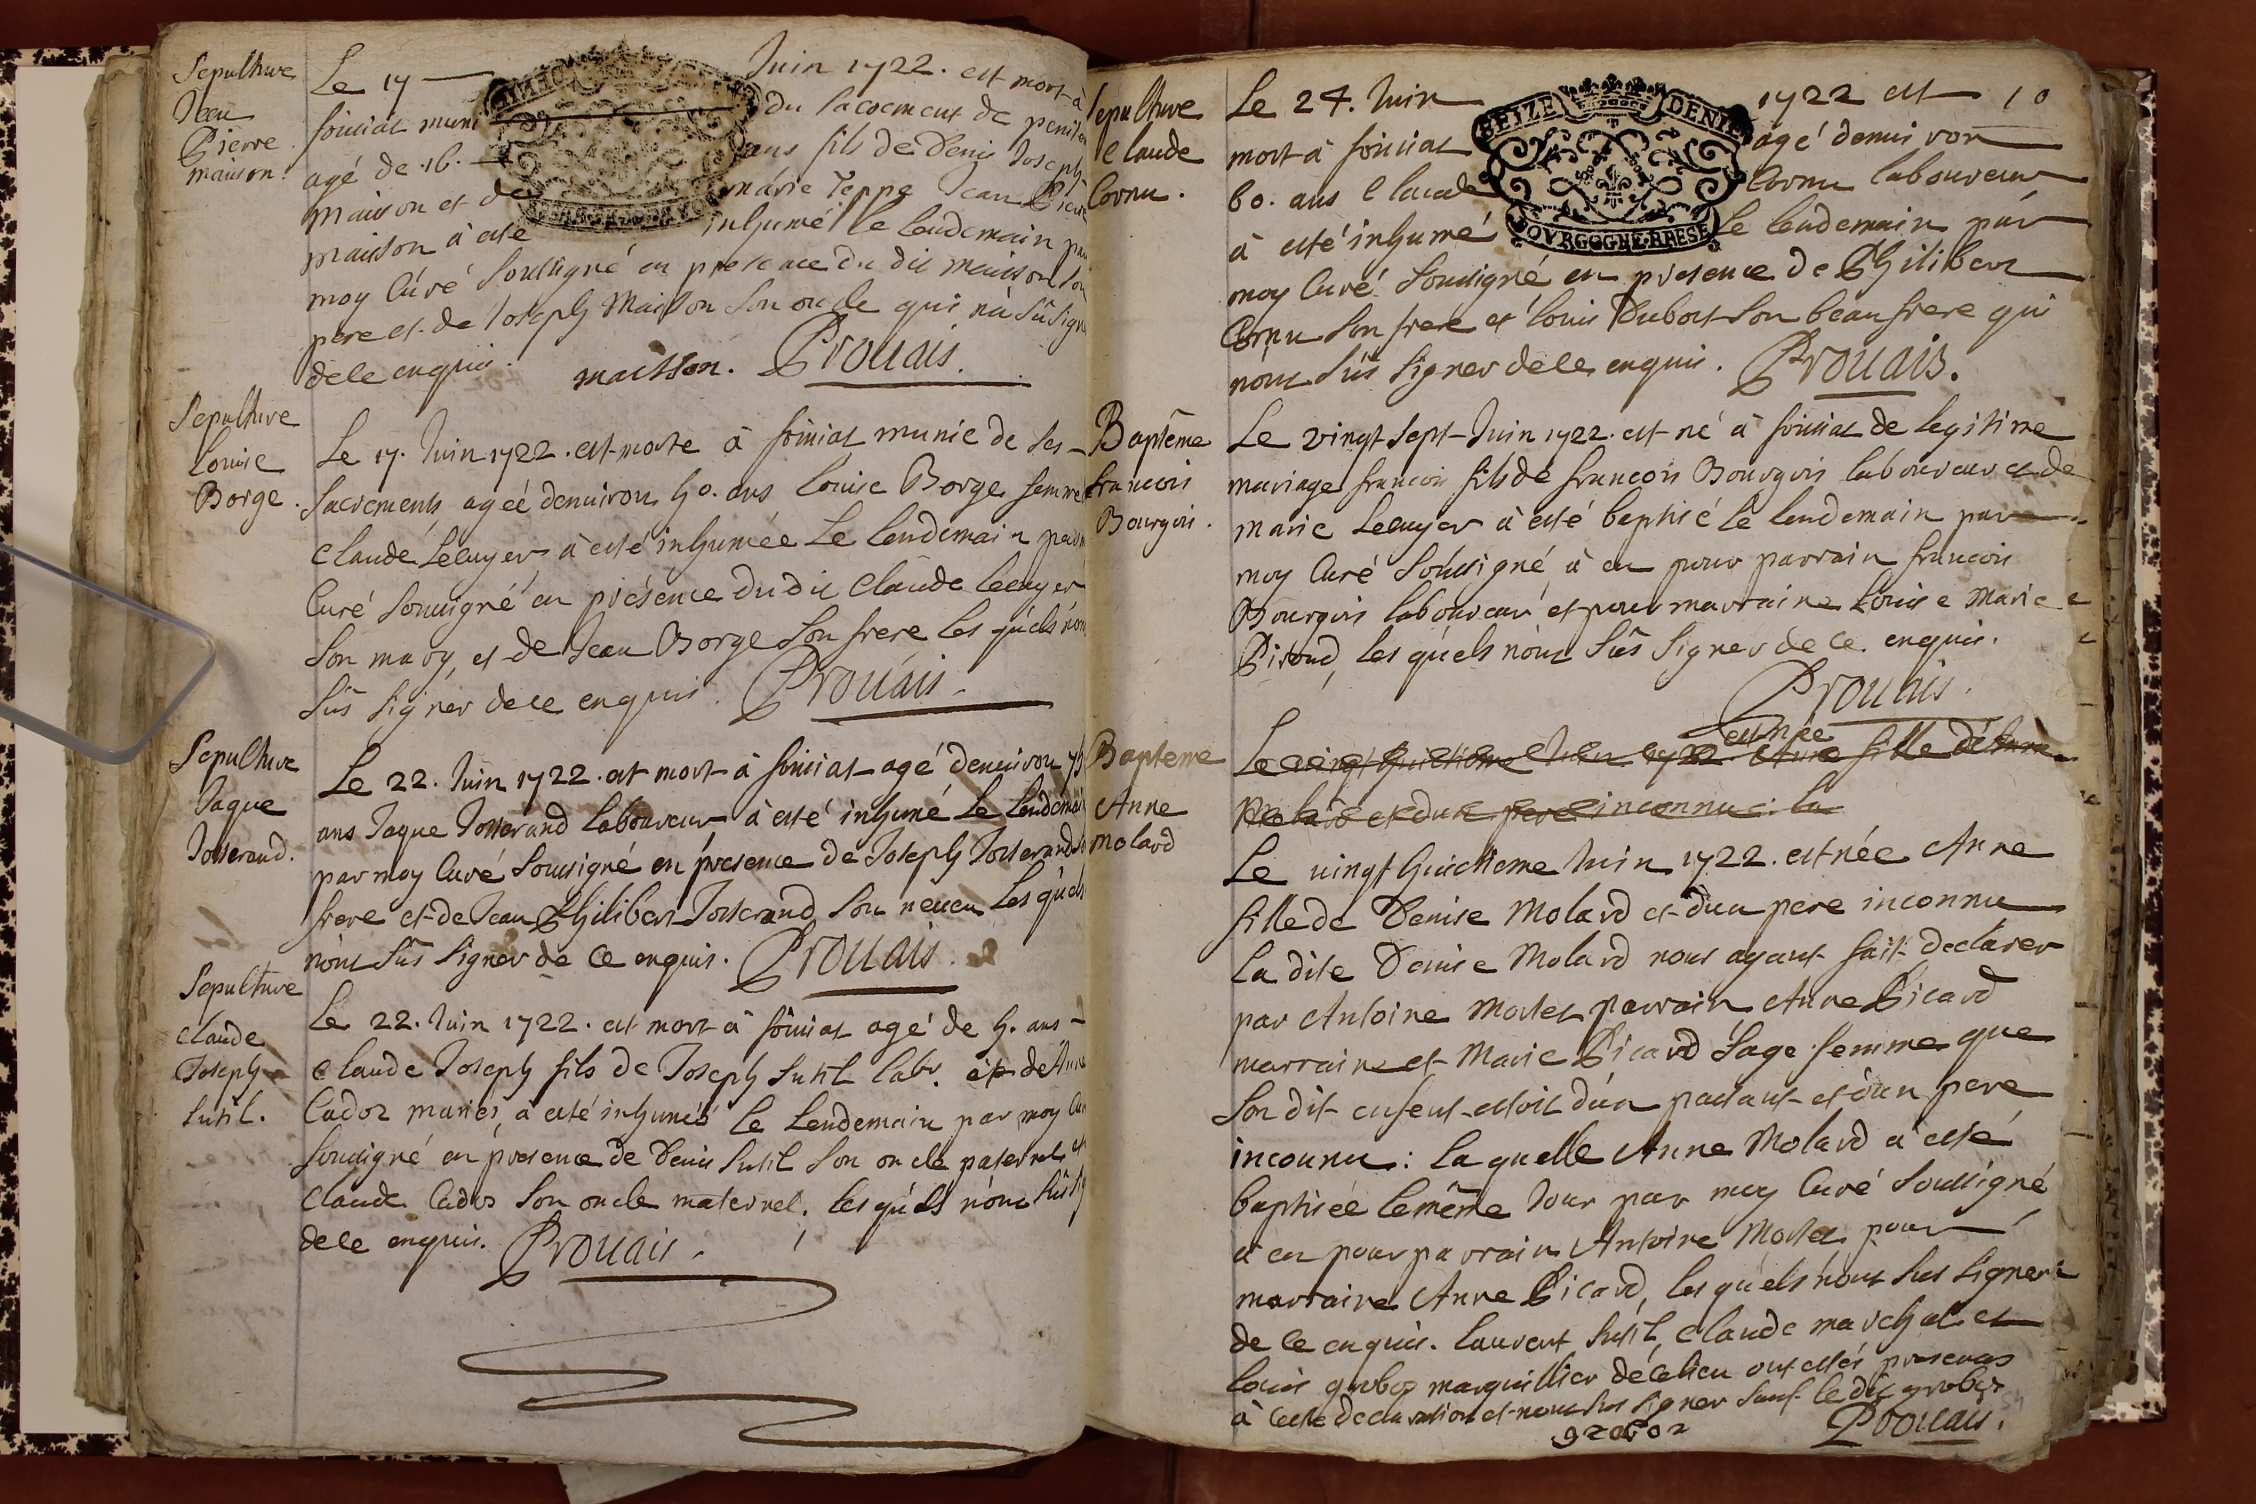 Sepulture
Jean
Pierre
maison.
Le 17 Juin 1722. est mort à
foissiat muni du sacrement de peniten
agé de .16. ans fils de Denis Joseph
Maisson et de marie Teppe Jean Pierre
maisson à esté inhumé le lendemain par
moy Curé soussigné en presence du dit maisson son
pere et de Joseph Maisson son oncle qui n'a sû sign
de ce enquis. maisson. Prouais.
Sepulture
Louise
Borge.
Le 17. Juin 1722. est morte à foissiat munie de ses
sacrements ageé d'enuiron 40. ans Louise Borge femme
Claude Lecuyer à esté inhumée Le lendemain par
Curé soussigné en présence du dit Claude Lecuyer
son mary, et de Jean Borge son frere les quels n'ont
sûs signer de ce enquis. Prouais.
Sepulture
Jaque
Josserand.
Le 22. Juin 1722. est mort à foissiat agé d'enuiron 75
ans Jaque Josserand laboureur à esté inhumé Le lendemain
par moy Curé soussigné en presence de Joseph Josserand
frere et de Jean Philibert Josserand son neueu Les quels
n'ont sûs signer de ce enquis. Prouais.
Sepulture
Claude
Joseph
Sutil.
Le 22. Juin 1722. est mort à foissiat agé de 4. ans
Claude Joseph fils de Joseph Sutil labr. et de Anne
Cadoz mariés, à esté inhumé Le Lendemain par moy Cur
soussigné en presence de Denis Sutil son oncle paternel et
Claude Cadoz son oncle maternel. les quels n'ont sûs sig
de ce enquis. Prouais.
GENE
BOVRGOGNE
Sepulture
Claude
Cornu.
Le 24. Juin 1722 est 10
mort à foissiat agé d'enuiron
60. ans Claude Cornu laboureur
à esté inhumé Le lendemain par
moy Curé soussigné en presence de Philibert
Cornu son frere et Louis Dubost son beaufrere qui
n'ont sûs signer de ce enquis. Prouais.
SEIZE DENIE
BOVRGOGNE BRESE
Baptême
francois
Bourgois.
Le vingt sept Juin 1722. est né à foissiat de legitime
mariage francois fils de francois Bourgois laboureur et de
marie Lecuyer à esté baptisé Le lendemain par
moy Curé soussigné à eu pour parrain francois
Bourgois laboureur et pour marraine Louise Marie
Piroud, les quels n'ont sûs signer de ce enquis.
Prouais.
Baptême
Anne
molard
est née
Le vingt huictieme Juin 1722. Anne fille de
Molard et d'un pere inconnu: la
Le vingt huictieme Juin 1722. est née Anne
fille de Denise Molard et d'un pere inconnu
La dite Denise Molard nous ayant fait declarer
par Antoine Mortel parrain Anne Picard
marraine et Marie Picard sage femme que
son dit enfent estoit d'un passant et d'un pere
inconnu: laquelle Anne Molard à esté
baptisée le même Jour par moy Curé soussigné
à eu pour parrain Antoine Mortel pour
marraine Anne Picard, les quels n'ont sus signer
de ce enquis. Laurent Sutil, Claude marechal et
Louis groboz marguillier de ce lieu ont estés presents
à cette declaration et n'ont sus signer sauf le dit groboz
groboz Prouais.